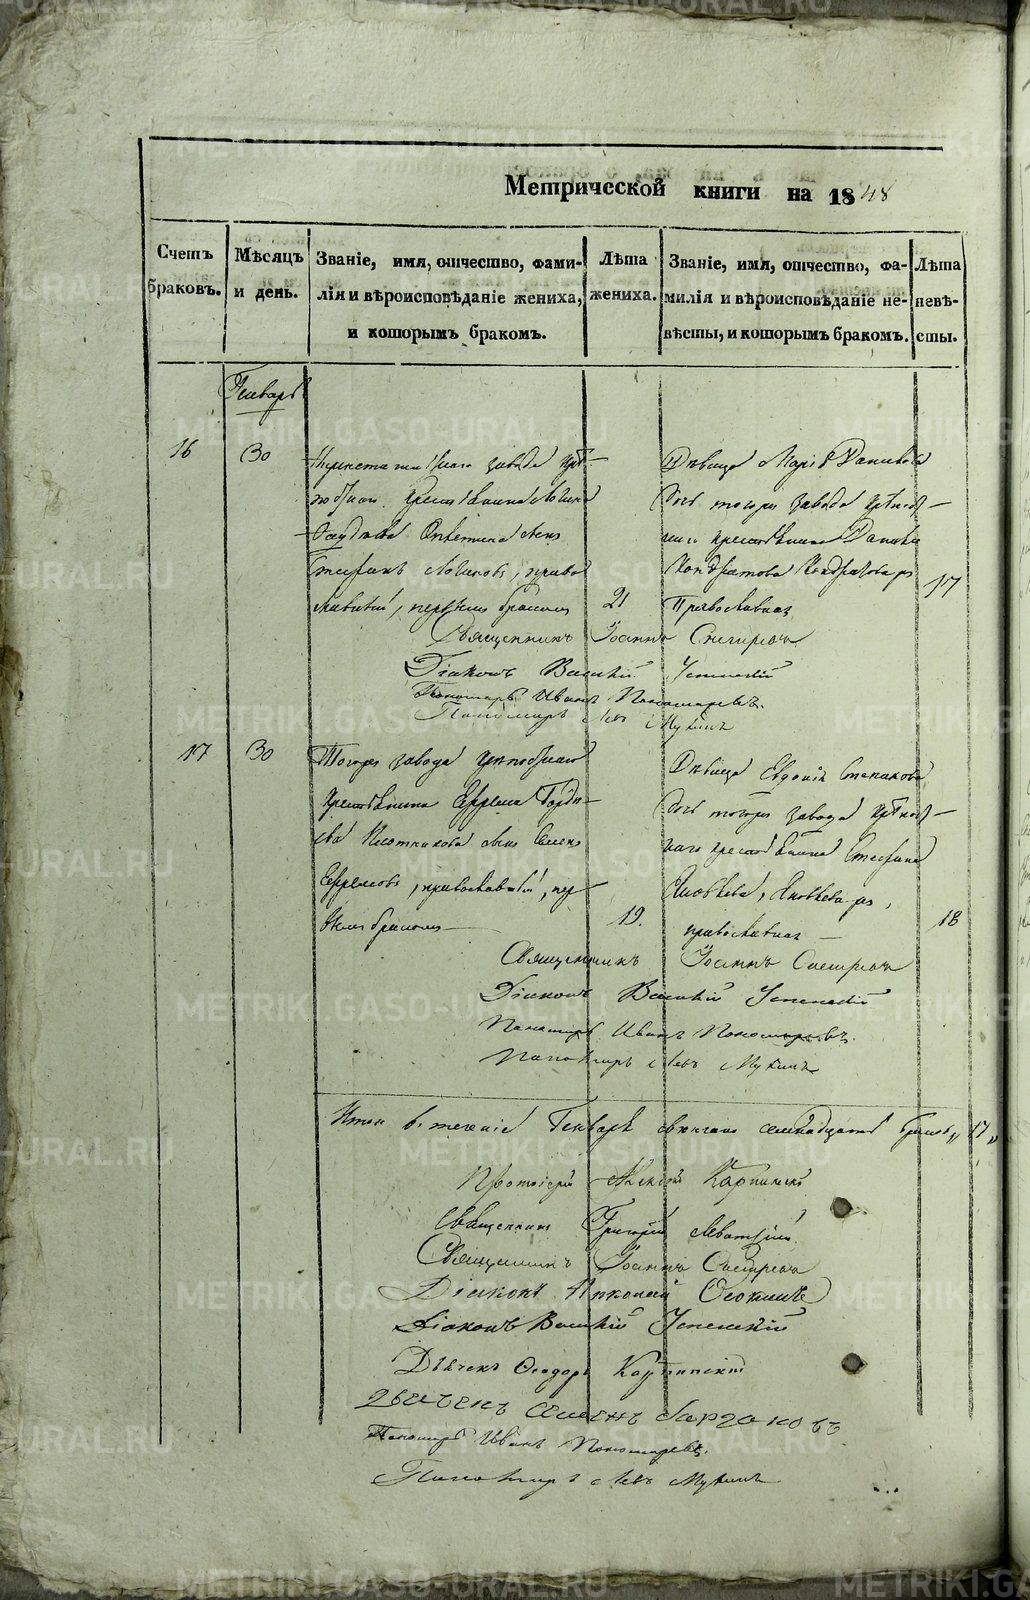 Метрической книги на 1848
Счетъ браковъ.
Мѣсяцъ и день.
Званіе, имя, отчество, фами-
лія и вѣроисповѣданіе жениха,
и которымъ бракомъ.
Лѣта жениха.
Званіе, имя, отчество, фа-
милія и вѣроисповѣданіе не-
вѣсты, и которымъ бракомъ.
Лѣта невѣ-
сты.
Генварь
16
30
завода
крестьянина
сынъ
Стефанъ Логиновъ, право
славный, первымъ бракомъ
21
Дѣвица Марія Данилова
дочь тогожъ завода крѣпост-
наго крестьянина Данила
Кондратова Кондратова
Православная
17
Священникъ Іоаннъ Снегиревъ
Діаконъ Василій Успенскій
Пономарь Иванъ Пономаревъ.
Пономарь Левъ Мухинъ
17
30
Тогожъ завода крѣпостнаго
крестьянина Ефрема Горд
ева Плотникова сынъ
Ефремовъ, православный, пер
вымъ бракомъ
19.
Дѣвица Евдокія Степанова
дочь тогожъ завода крѣпост-
наго крестьянина Стефана
Яковлева, Яковлева
православная
18
Священникъ Іоаннъ Снегиревъ
Діаконъ Василій Успенскій
Пономарь Иванъ Пономаревъ.
Пономарь Левъ Мухинъ
Итого въ теченіе Генваря семнадцать браковъ „17„
Протоіерей Алексій Карпинскій
Священникъ Григорій
Священникъ Іоаннъ Снегиревъ
Діаконъ Николай
Діаконъ Василій Успенскій
Дьячекъ Ѳеодоръ Карпинскій
Дьячекъ Семенъ
Пономарь Иванъ Пономаревъ.
Пономарь Левъ Мухинъ
METRIKI.GASO-URAL.RU